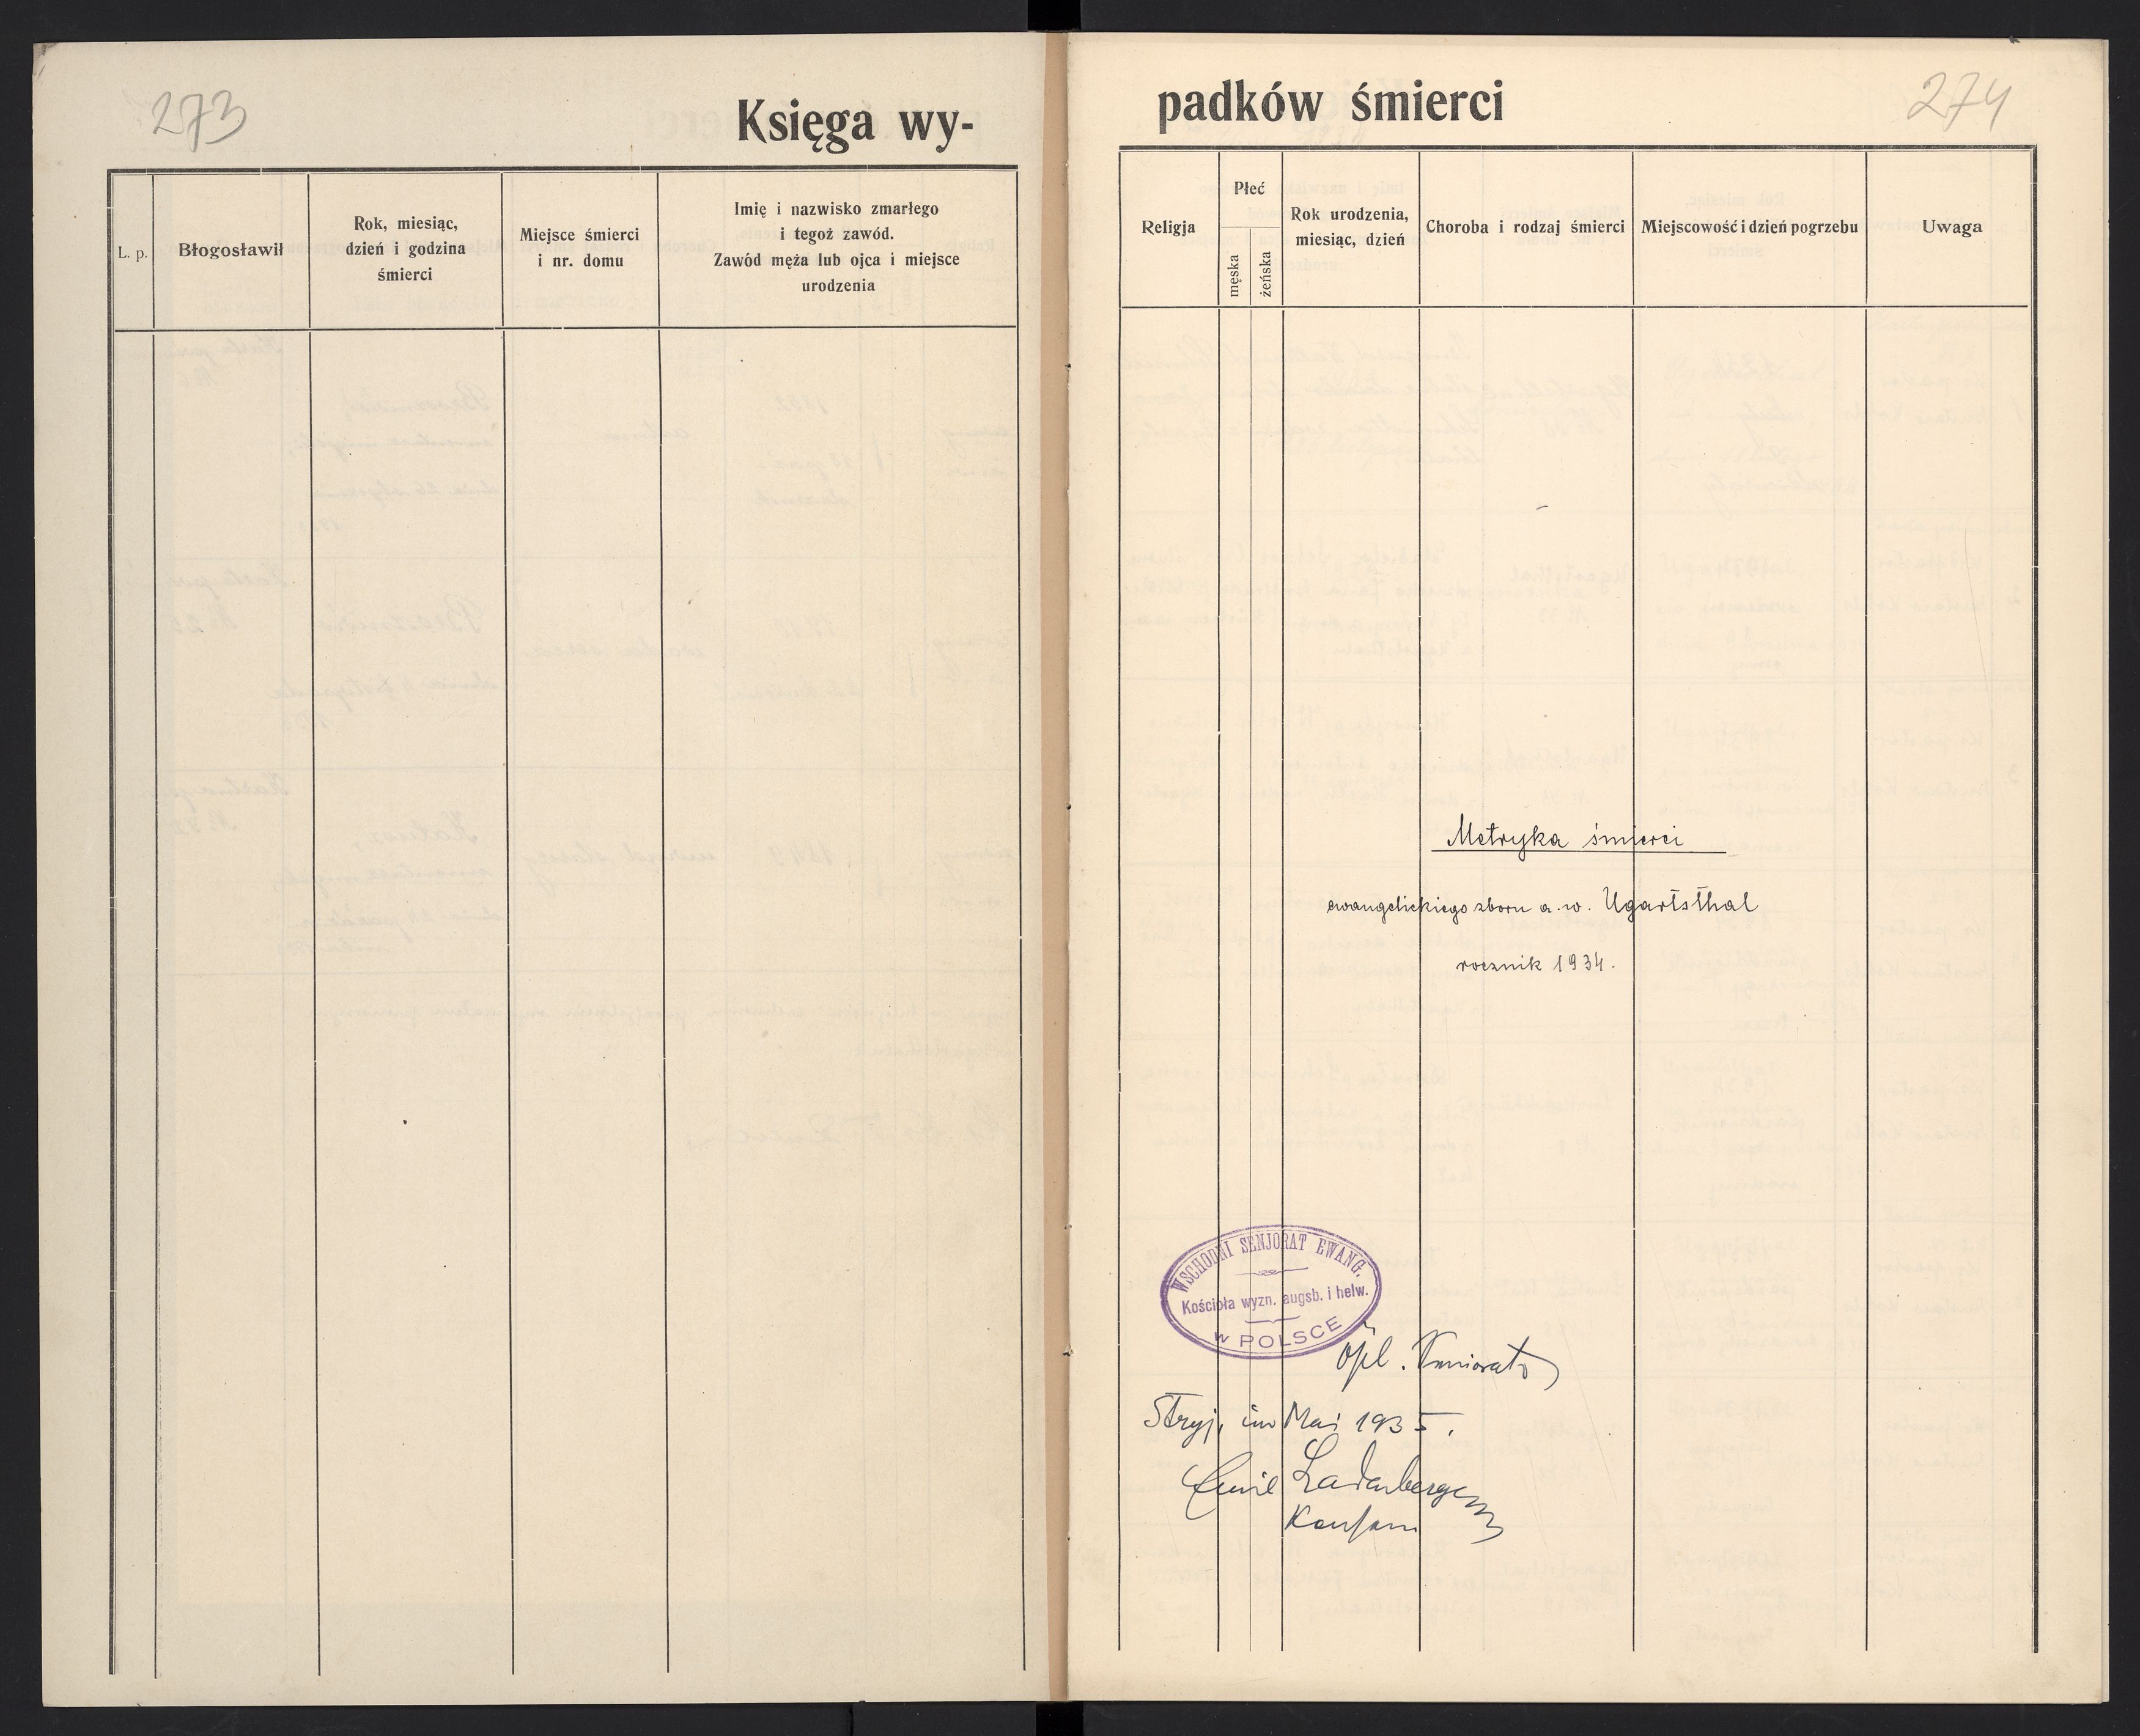 273
Księga wy-
L. p.
Błogosławił
Rok, miesiąc,
dzień i godzina
śmierci
Miejsce śmierci
i nr. domu
Imię i nazwisko zmarłego
i tegoż zawód.
Zawód męża lub ojca i miejsce
urodzenia
274
padków śmierci
Religja
Płeć
męska
żeńska
Rok urodzenia,
miesiąc, dzień
Choroba i rodzaj śmierci
Miejscowość i dzień pogrzebu
Uwaga
Metryka śmierci
ewangelickiego zboru a. w. Ugartsthal
rocznik 1934.
WSCHODNI SENJORAT EWANG.
Kościoła wyzn. augsb. i helw.
w POLSCE
Stryj, im Mai 1935.
Emil Ladenberger